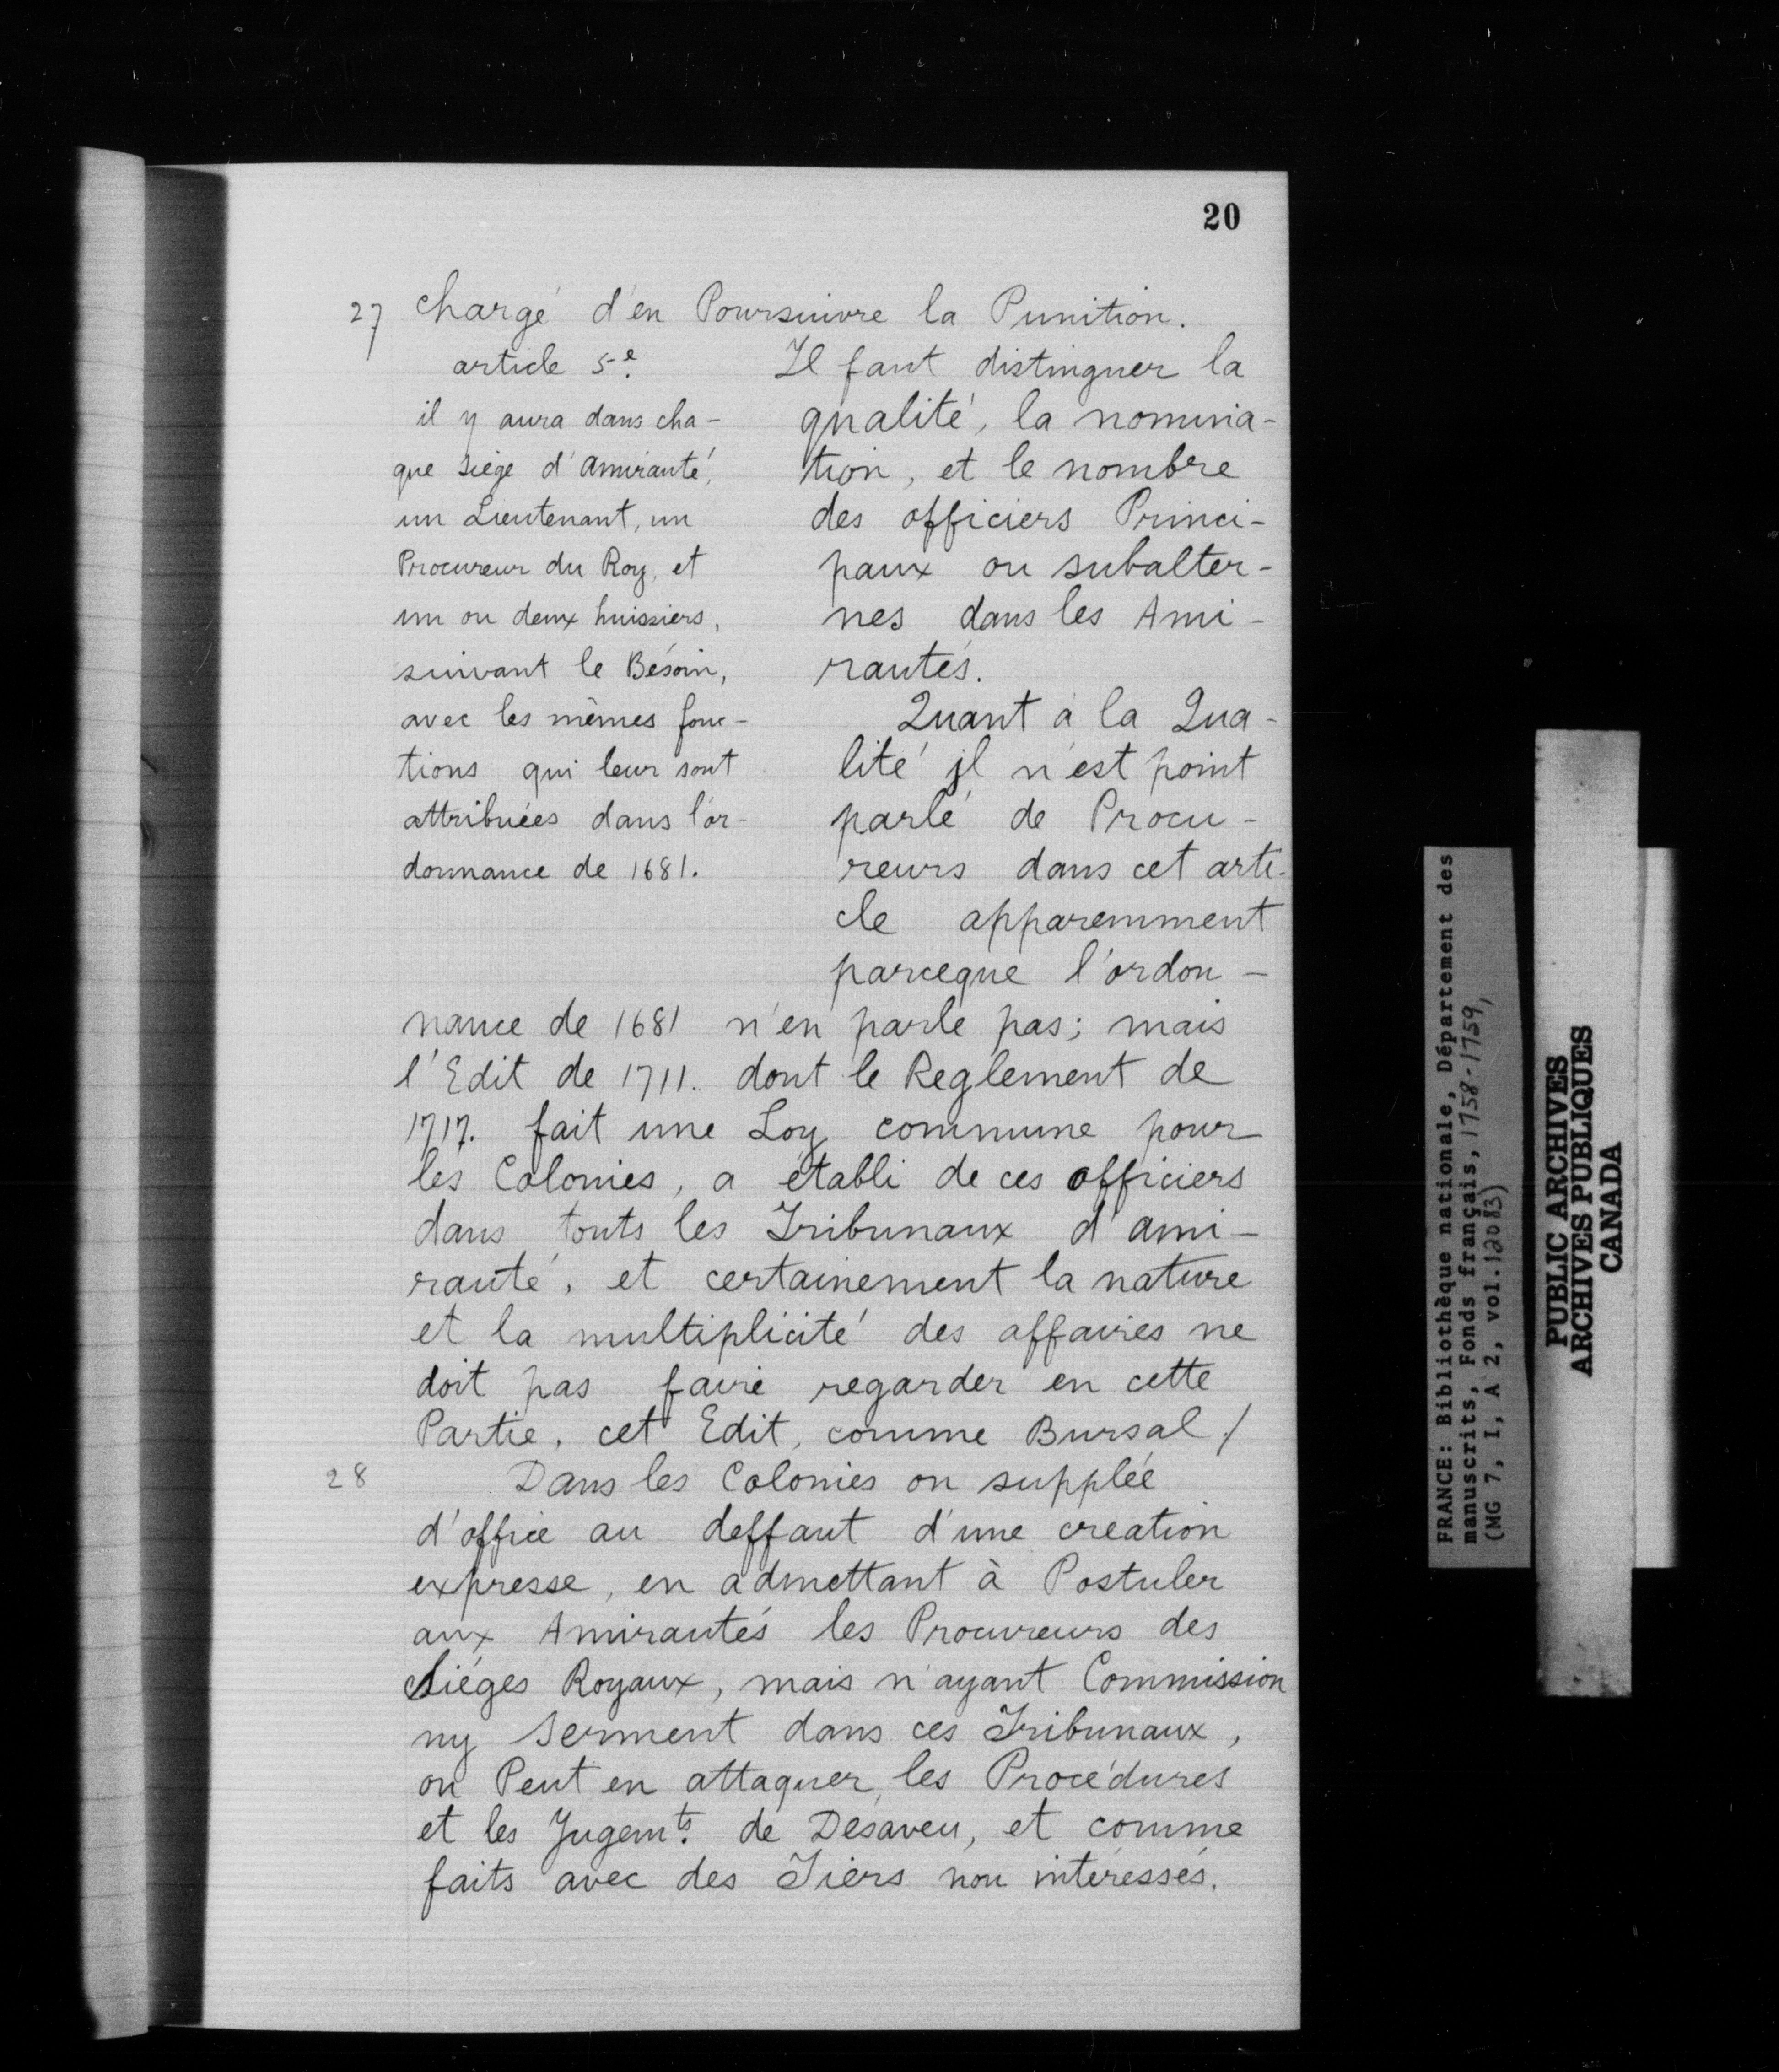 20
27 chargé d'en Poursuivre la Punition.
article 5e.
il y aura dans cha-
que siège d'amirauté,
un Lieutenant, un
Procureur du Roy, et
un ou deux huissiers,
suivant le Bésoin,
avec les mêmes fonc-
tions qui leur sont
attribuées dans l'or-
donnance de 1681.
Il faut distinguer la
qualité, la nomina-
tion, et le nombre
des officiers Princi-
paux ou subalter-
nes dans les Ami-
rautés.
Quant à la Qua-
lité il n'est point
parlé de Procu-
reurs dans cet arti-
cle apparemment
parceque l'ordon-
nance de 1681 n'en parle pas; mais
l'Edit de 1711. dont le Reglement de
1717. fait une Loy commune pour
les Colonies, a établi de ces officiers
dans touts les Tribunaux d'ami-
rauté, et certainement la nature
et la multiplicité des affaires ne
doit pas faire regarder en cette
Partie, cet Edit, comme Bursal /
28 Dans les Colonies on supplée
d'office au deffaut d'une creation
expresse, en admettant à Postuler
aux Amirautés les Procureurs des
Siéges Royaux, mais n'ayant Commission
ny serment dans ces Tribunaux,
on Peut en attaquer les Procédures
et les Jugemts. de Désaveu, et comme
faits avec des Tiers non intéressés.
FRANCE: Bibliothèque nationale, Département des
manuscrits, Fonds français, 1758-1759,
(MG 7, I, A 2, vol. 12083)
PUBLIC ARCHIVES
ARCHIVES PUBLIQUES
CANADA